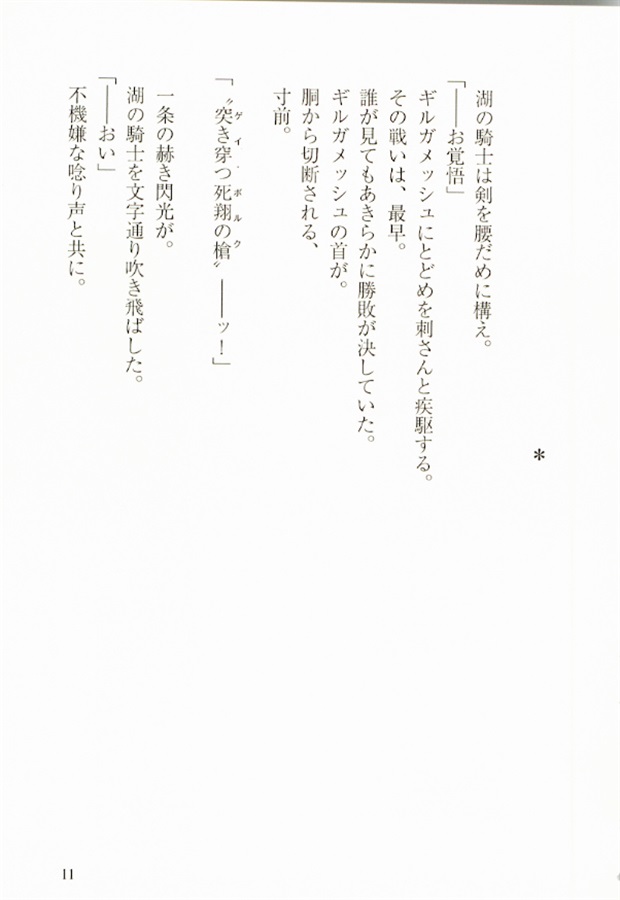 ＊
湖の騎士は剣を腰だめに構え。
「――お覚悟」
ギルガメッシュにとどめを刺さんと疾駆する。
その戦いは、最早。
誰が見てもあきらかに勝敗が決していた。
ギルガメッシュの首が。
胴から切断される、
寸前。
ゲイ・ボルク
「〝突き穿つ死翔の槍〟――ッ！」
一条の赫き閃光が。
湖の騎士を文字通り吹き飛ばした。
「――おい」
不機嫌な唸り声と共に。
11